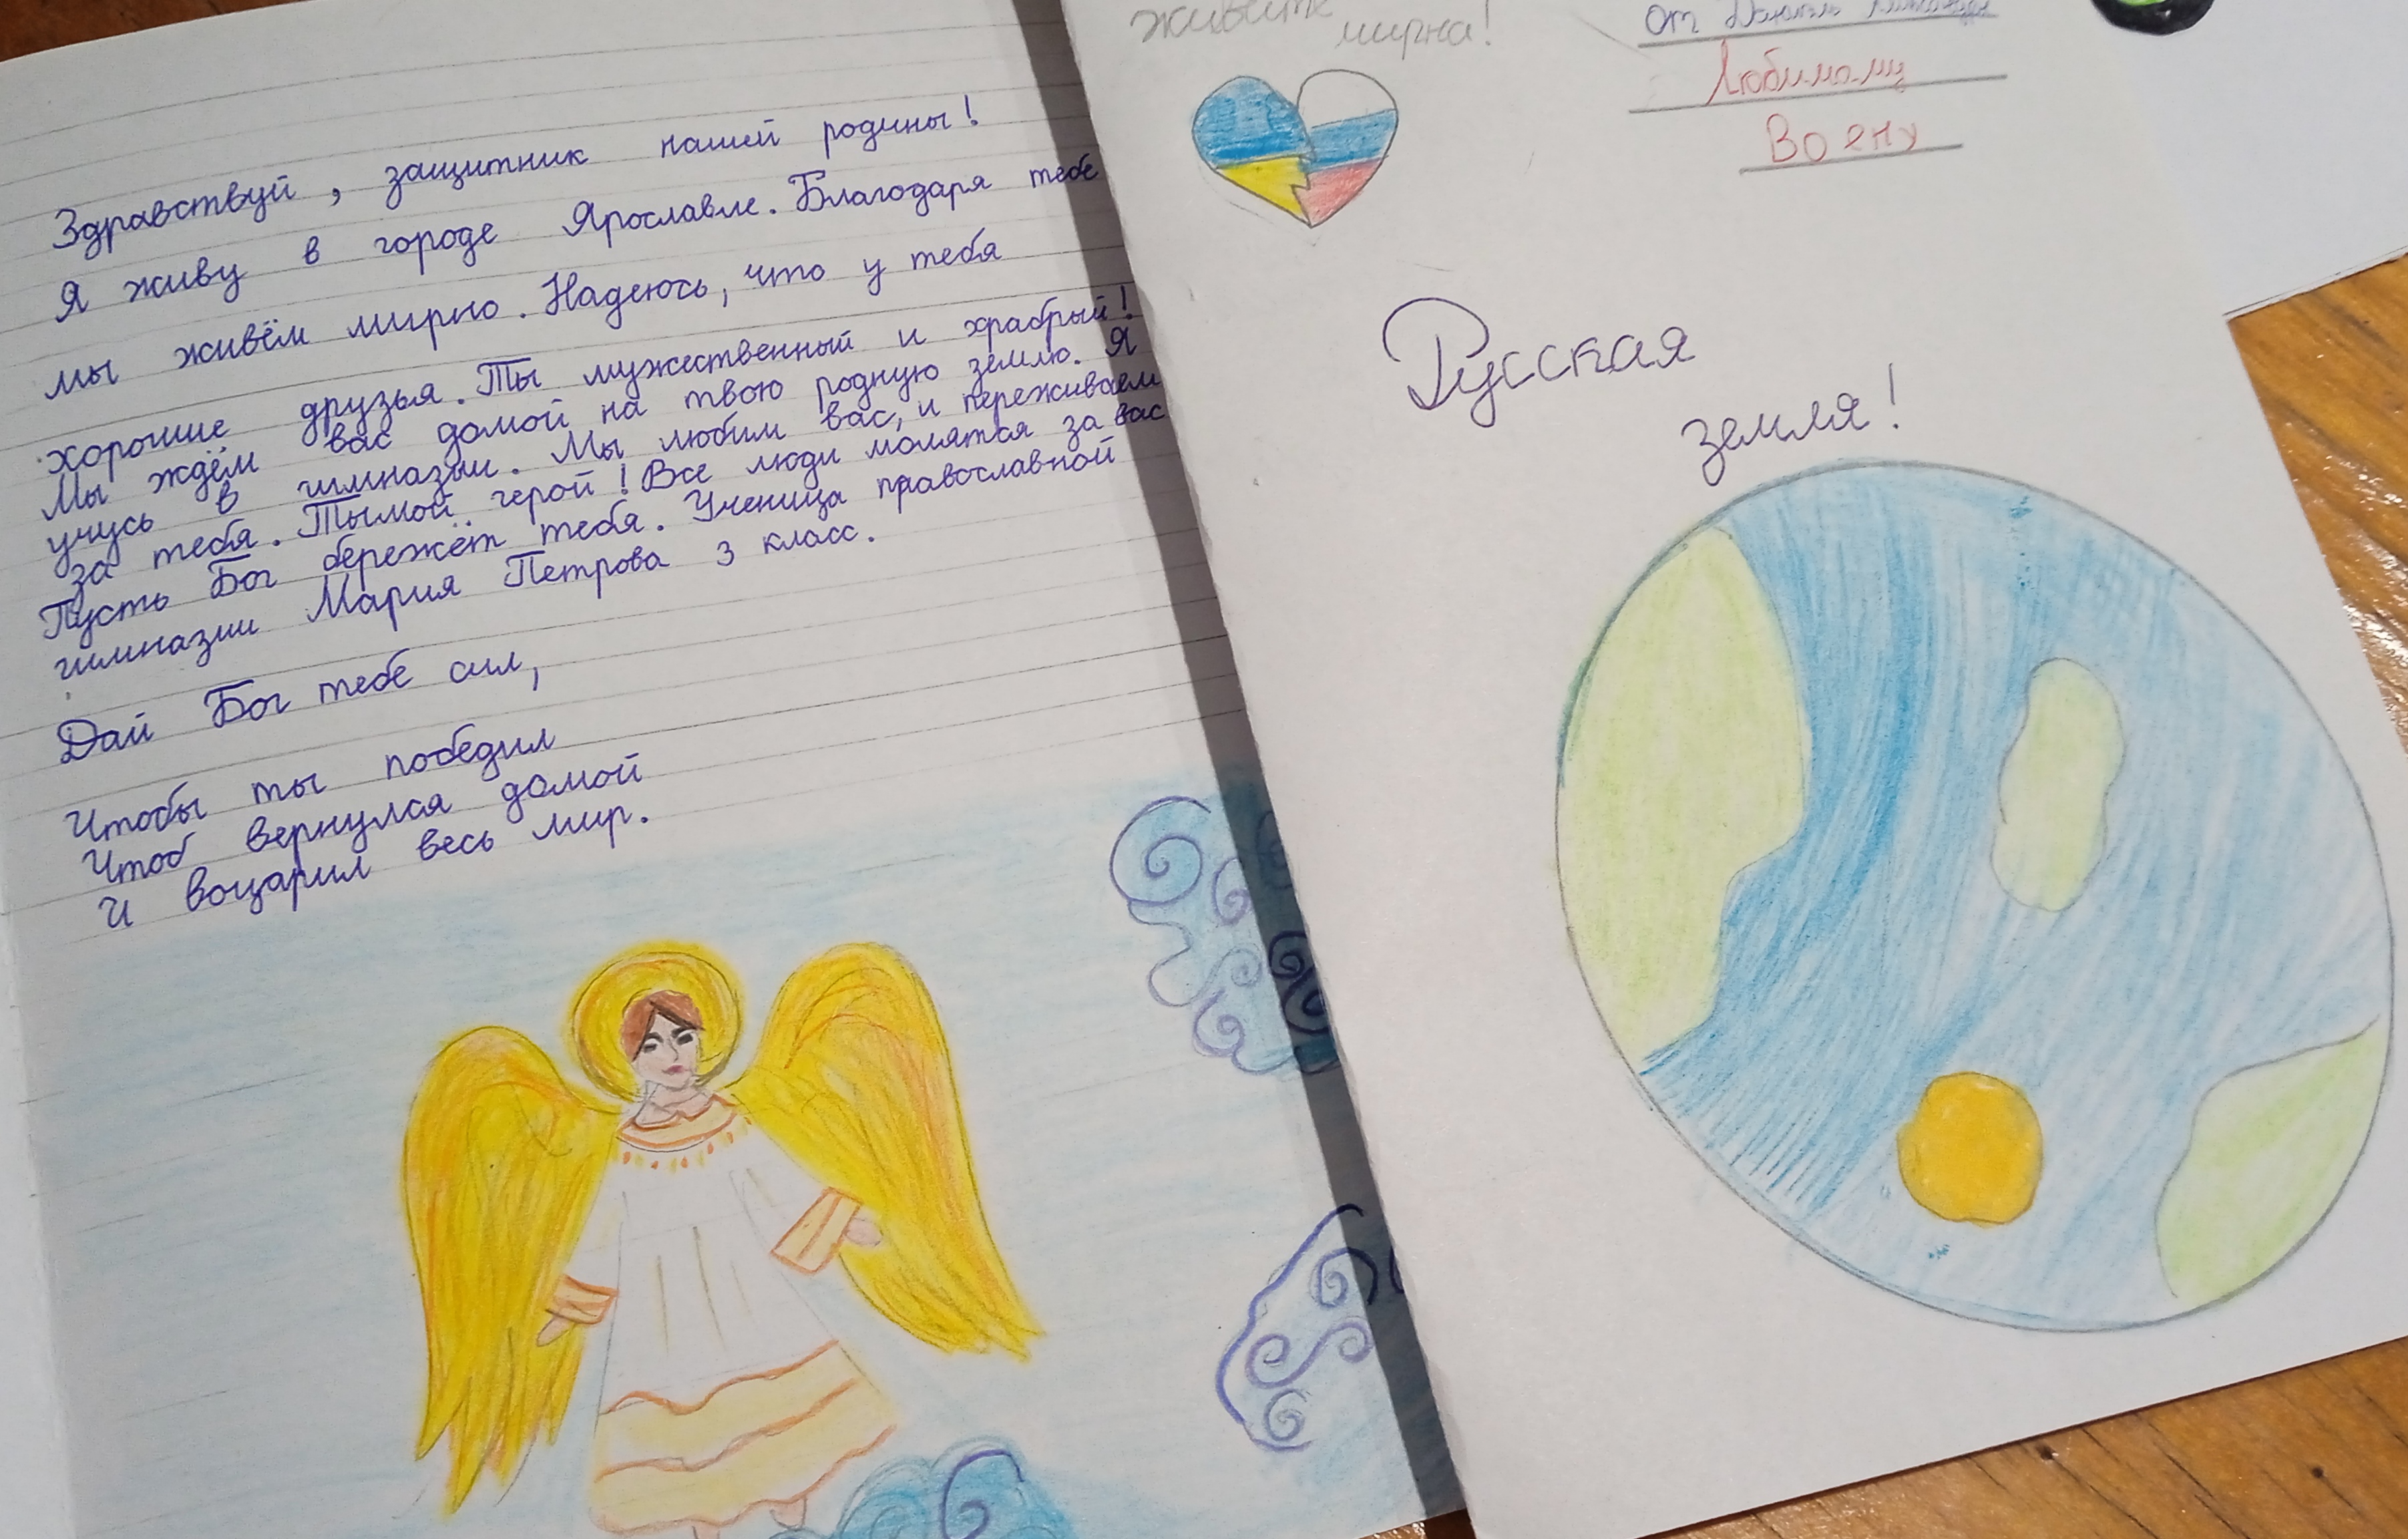 Здравствуй, защитник нашей родины!
Я живу в городе Ярославле. Благодаря тебе
мы живём мирно. Надеюсь, что у тебя
хорошие друзья. Ты мужественный и храбрый!
Мы ждём вас домой на твою родную землю. Я
учусь в гимназии. Мы любим вас, и переживаем
за тебя. Ты мой герой! Все люди молятся за вас
Пусть Бог бережёт тебя. Ученица православной
гимназии Мария Петрова 3 класс.
Дай Бог тебе сил,
Чтобы ты победил
Чтоб вернулся домой
И воцарил весь мир.
живите
мирна!
от
Любимому
Воену
Русская
земля!